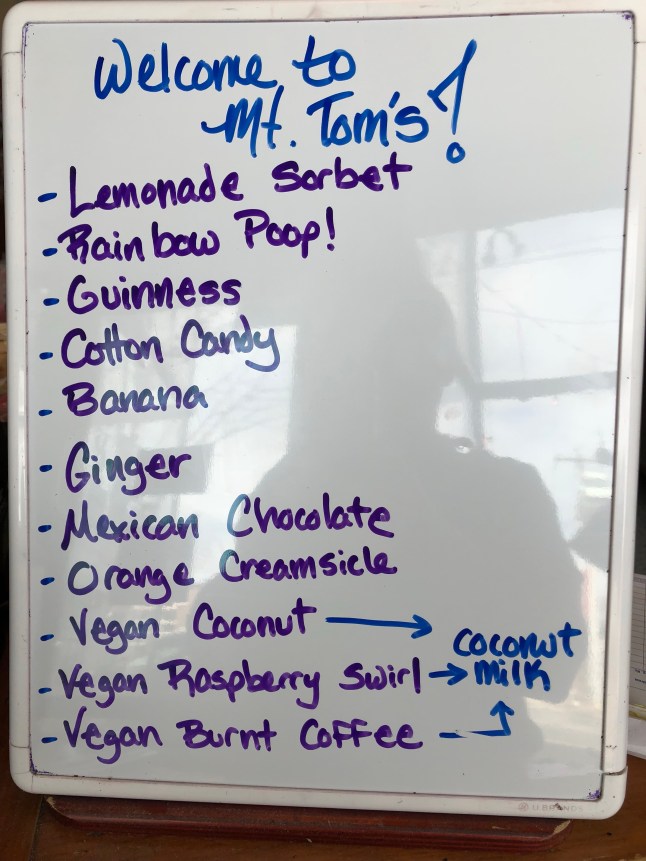 Welcome to
Mt. Tom's!
- Lemonade Sorbet
- Rainbow Poop!
- Guinness
- Cotton Candy
- Banana
- Ginger
- Mexican Chocolate
- Orange Creamsicle
- Vegan Coconut →
- Vegan Raspberry Swirl → coconut milk
- Vegan Burnt Coffee
U BRANDS